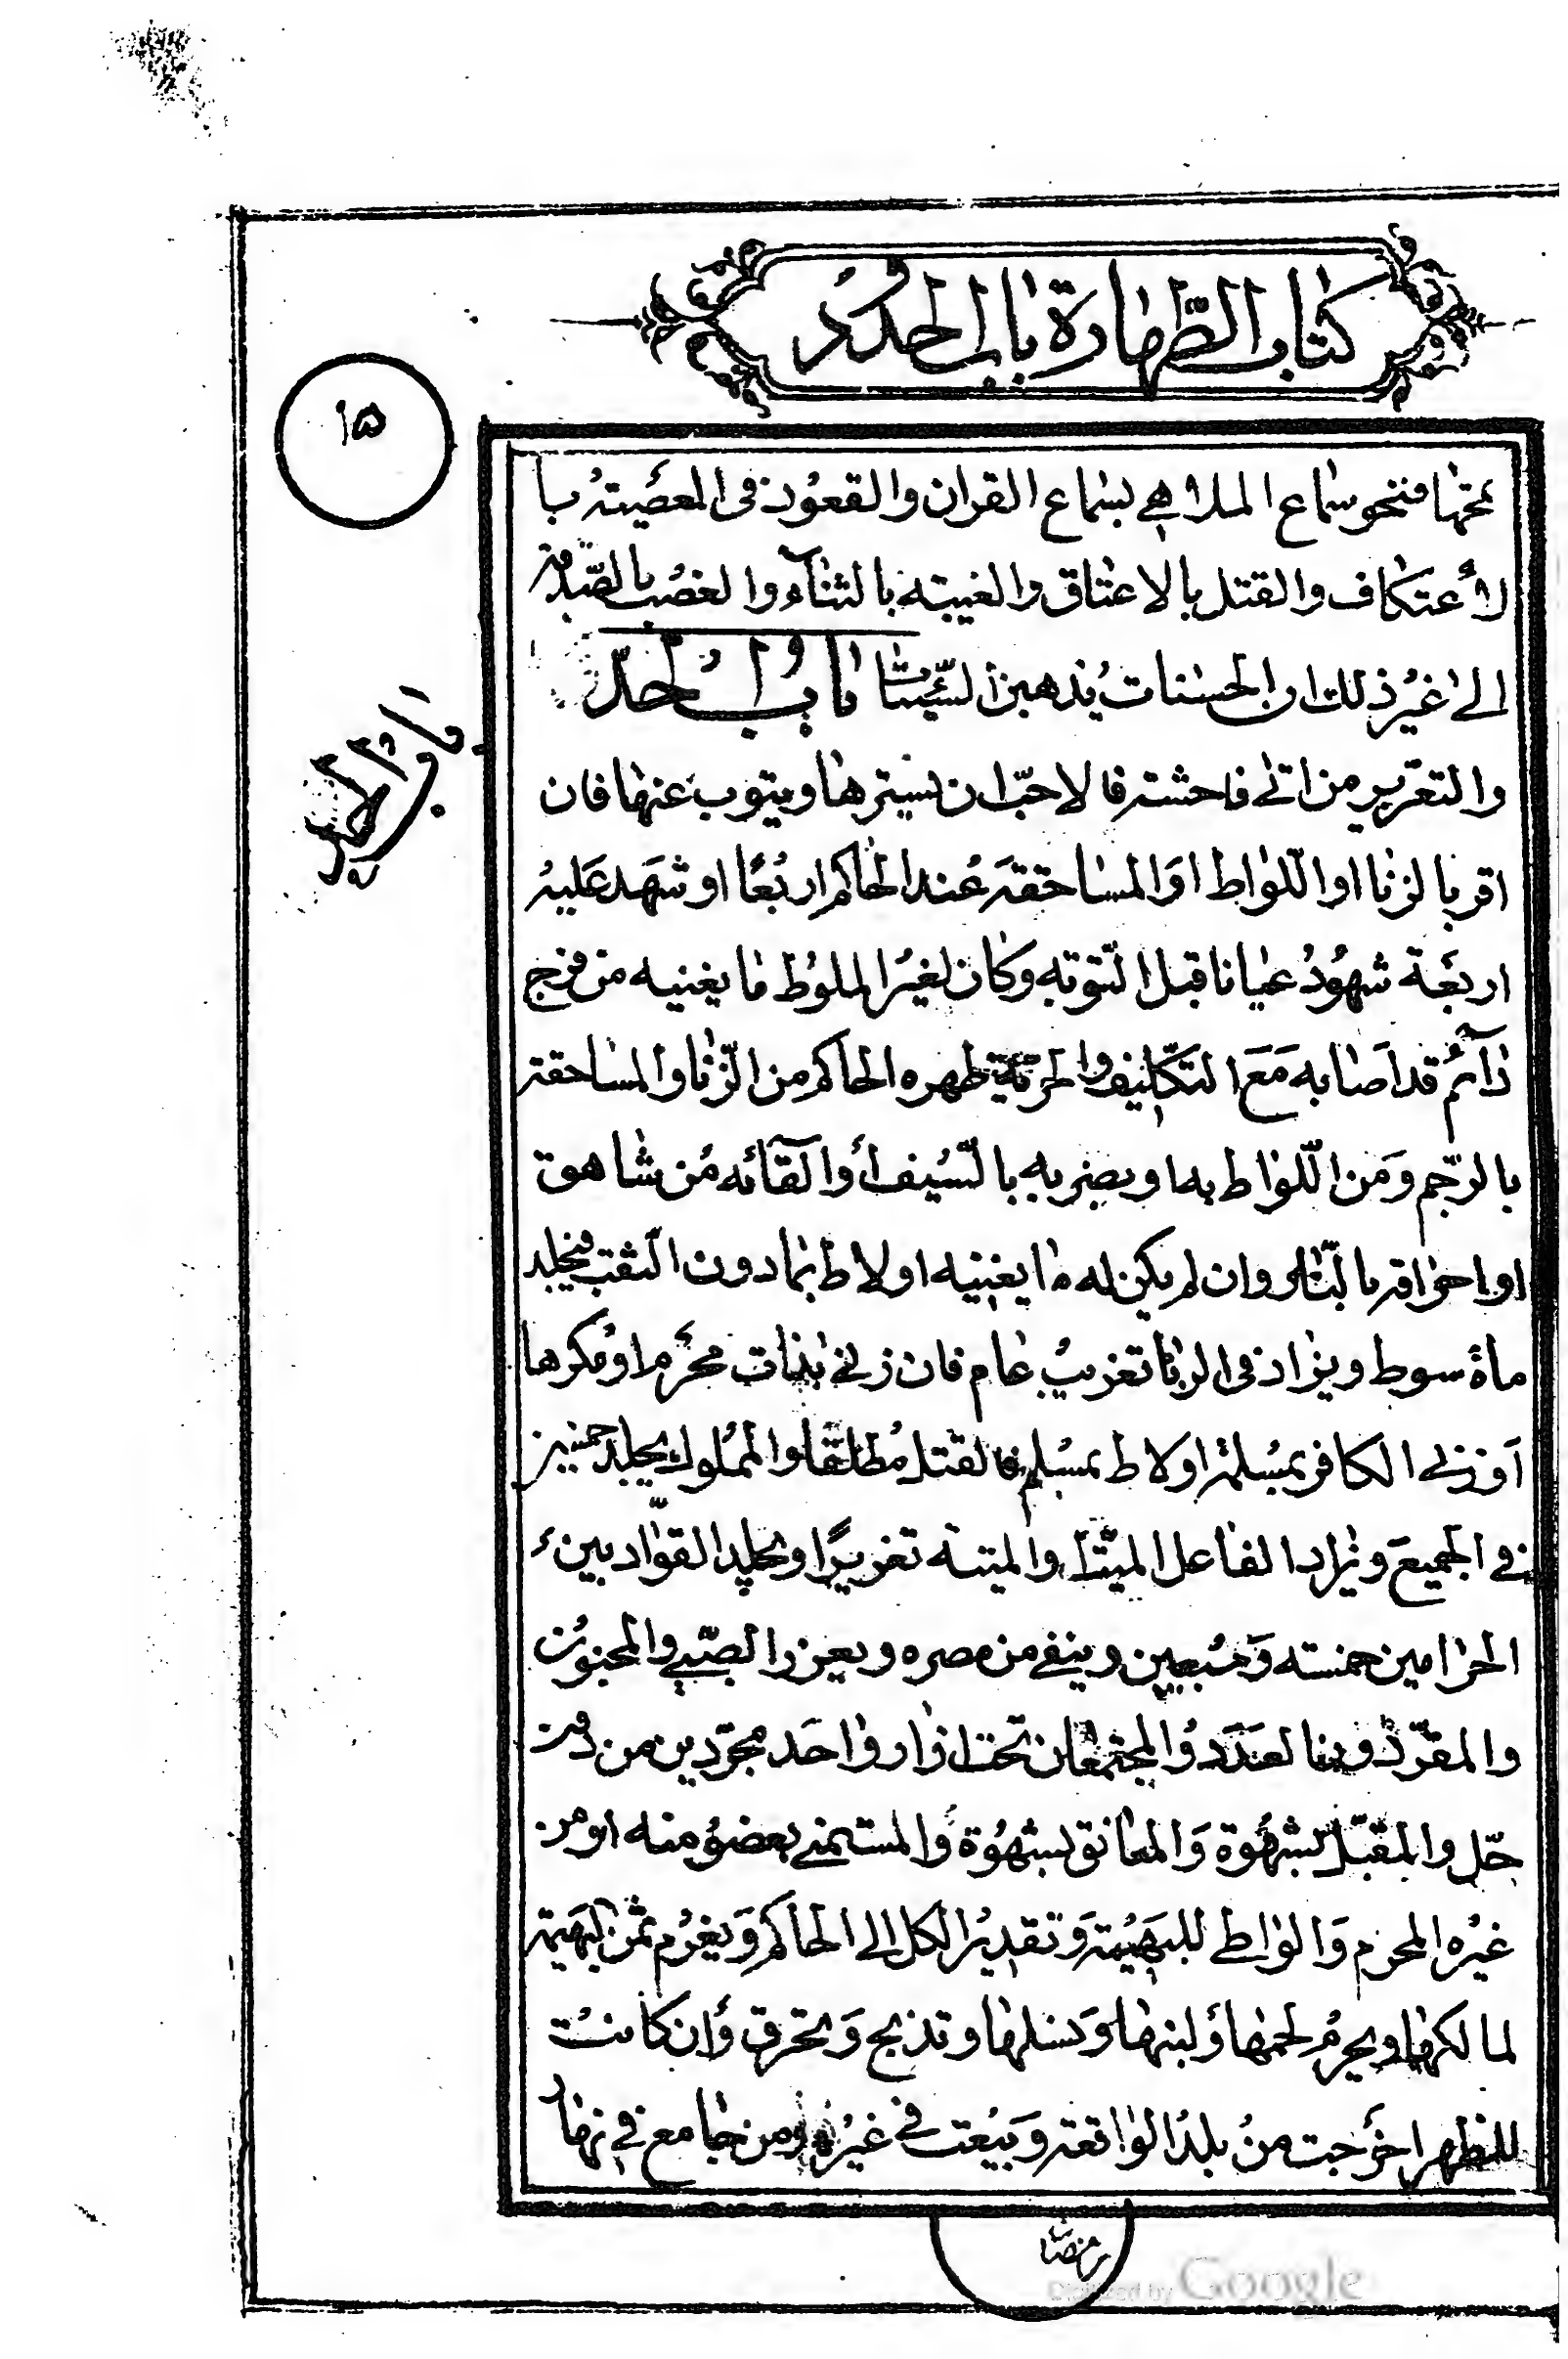 كتاب الطهارة باب الحدود
۱۵
تمحها فنحو سماع الملاهي بسماع القران والقعود في المعصيته با
لأعتكاف والقتل بالاعتاق والغيبته بالثناء والغصب بالصدقه
الى غير ذلك ان الحسنات يذهبن السيئات باب الحدّ
باب الحد
والتعزير من اتى فاحشته فالاحبّ ان يسترها ويتوب عنها فان
اقر بالزنا او اللّواط او المساحقته عند الحاكم اربعًا او شهد عليه
اربعة شهود عيانا قبل التوبه وكان لغير الملوط ما يغنيه من فرج
دآئم قد اصابه مع التكليف والحرّية طهره الحاكم من الزّنا والمساحقته
بالرّجم ومن اللّواط به او بضربه بالسّيف أو القآئه من شاهق
او احراقه بالنّار وان لم يكن له ما يغنيه او لاط بمادون الثقب فيجلد
مأة سوط ويزاد في الزنا تغريب عام فان زنى بذات محرم او مكرها
او زنى الكافر بمسلمة او لاط بمسلم فالقتل مطلقا والمملوك يجلد خمسين
في الجميع ويزاد الفاعل الميّت والميتة تعزيرًا ويجلد القوّاد بين
الحرامين خمسته وسبعين وينفى من مصره ويعزر الصّبي والمجنون
والمقرّ دون العدد والمجتمعان تحت ازار واحد مجرّدين من دون
حلّ والمقبّل بشهوة والمعانق بشهوة والمستمني بعضو منه او من
غيره المحرم والواطي للبهيمته وتقدير الكل الى الحاكم ويغرم ثمن البهيمة
لمالكها ويحرم لحمها ولبنها ونسلها وتذبح وتحرق وان كانت
للظهر اخرجت من بلد الواقعته وبيعت في غيره ومن جامع في نهار
رمضان
Digitized by Google